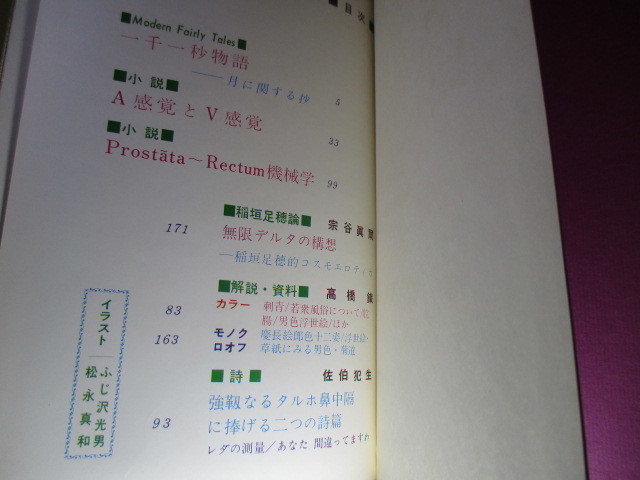 ■目次■
■Modern Fairly Tales■
一千一秒物語
――月に関する抄 5
■小説■
A感覚とV感覚 33
■小説■
Prostāta～Rectum機械学 99
■稲垣足穂論■ 宗谷眞
171 無限デルタの構想
―稲垣足穂的コスモエロティ
■解説・資料■ 高橋鐵
83 カラー 刺青/若衆風俗について/
腸/男色浮世絵/ほか
163 モノク 慶長絵郎色十二奏/浮世絵・
ロオフ 草紙にみる男色・菊道
■詩■ 佐伯犯生
強靱なるタルホ鼻中隔
93 に捧げる二つの詩篇
レダの測量/あなた 間違ってますわ
イラスト ふじ沢光男
松永真和